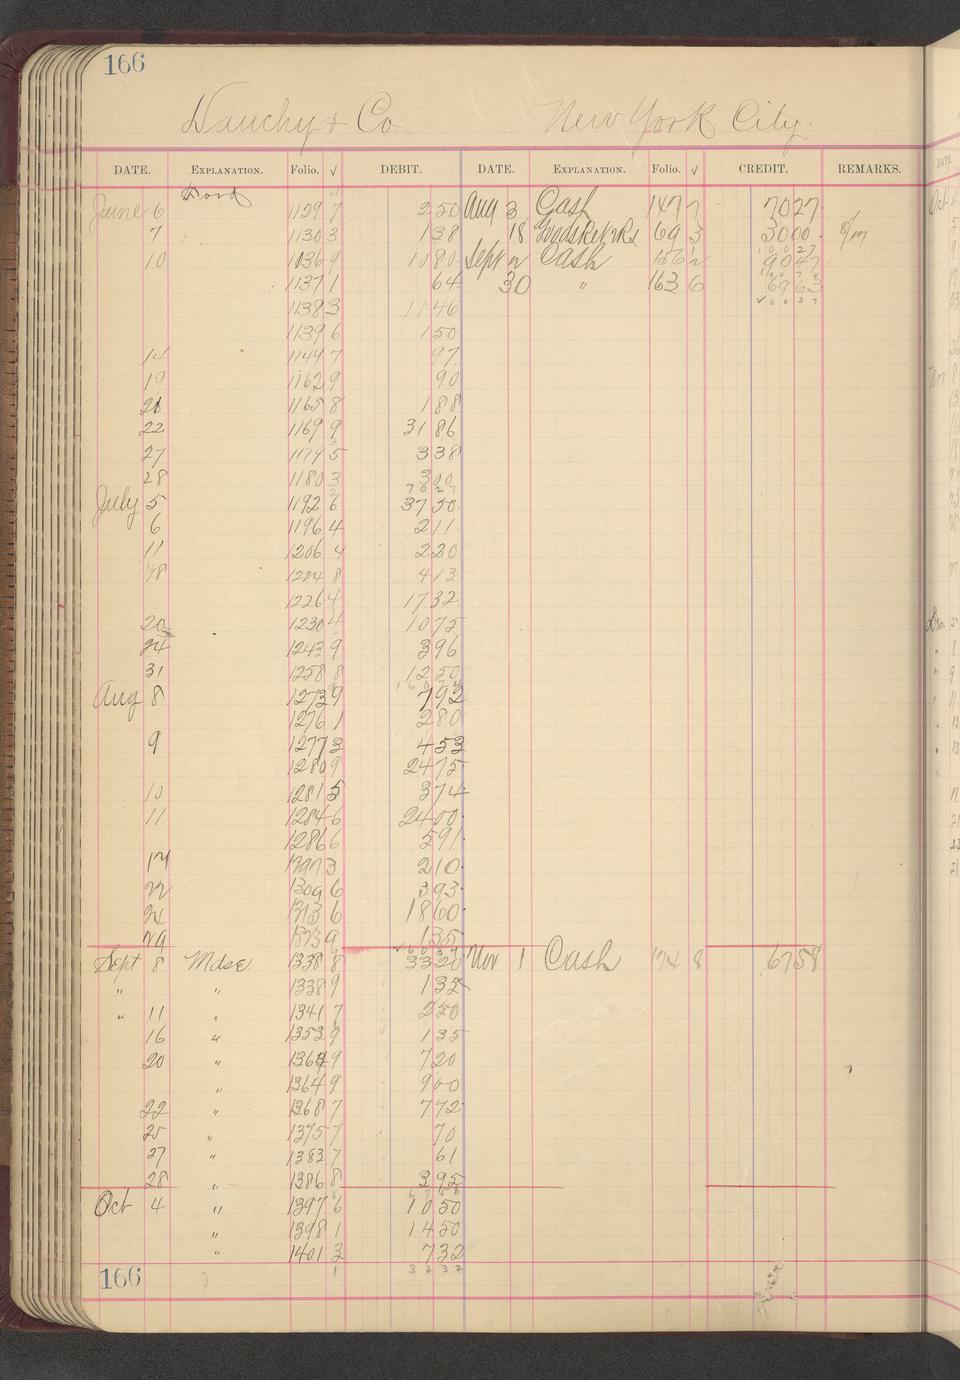 166
Dauchy & Co New York City.
DATE. EXPLANATION. Folio. √ DEBIT. DATE. EXPLANATION. Folio. √ CREDIT. REMARKS.
June 6 1129 7 2 50 Aug 3 Cash 147 7 70 27
7 1130 3 1 38 18 69 3 30 00
10 1036 9 10 80 Sept 2 Cash 156 2 90 47
1137 1 64 30 " 163 6 69 63
1138 3 11 46 √ 6 0 3 7
1139 6 1 50
14 1144 7 97
19 1162 9 90
21 1165 8 1 88
22 1169 9 31 86
27 1179 5 3 38
28 1180 3 3 00
7 0 2 7
July 5 1192 6 37 50
6 1196 4 2 11
11 1206 4 2 20
18 1224 8 4 13
1226 4 17 32
20 1230 4 10 75
24 1243 9 3 96
31 1258 8 12 50
Aug 8 1273 9 7 92
1276 1 2 80
9 1277 3 4 53
1280 9 24 75
10 1281 5 3 74
11 1284 6 24 00
1286 6 5 91
14 1297 3 2 10
22 1309 6 3 93
24 1313 6 18 60
29 1323 9 1 35
Sept 8 Mdse 1338 8 33 20 Nov 1 Cash 174 8 67 58
" " 1338 9 1 35
" 11 " 1341 7 2 50
16 " 1353 9 1 35
20 " 1364 9 7 20
" 1364 9 9 00
22 " 1368 7 7 72
25 " 1375 7 70
27 " 1383 7 61
28 " 1386 8 3 95
6 7 5 8
Oct 4 " 1397 6 10 50
" 1398 1 14 50
" 1401 3 7 32
166 1 3 2 3 2